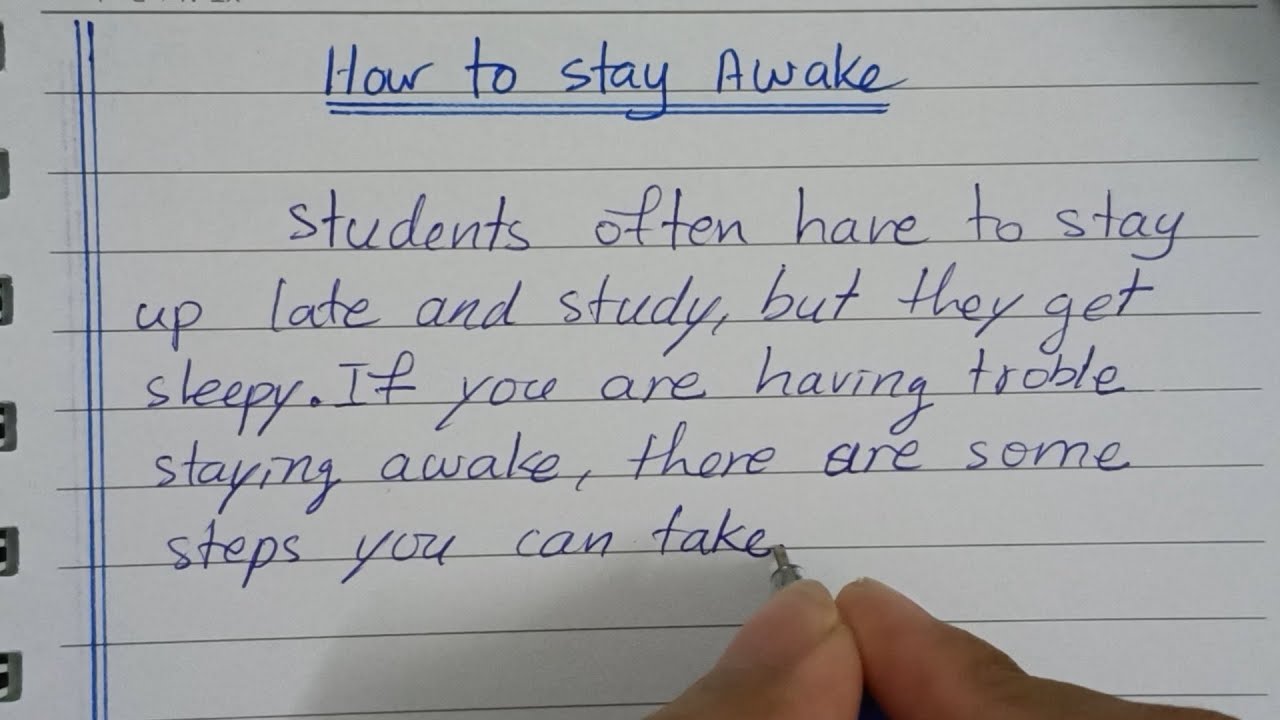 How to stay Awake
students often have to stay
up late and study, but they get
sleepy. If you are having troble
staying awake, there are some
steps you can take.